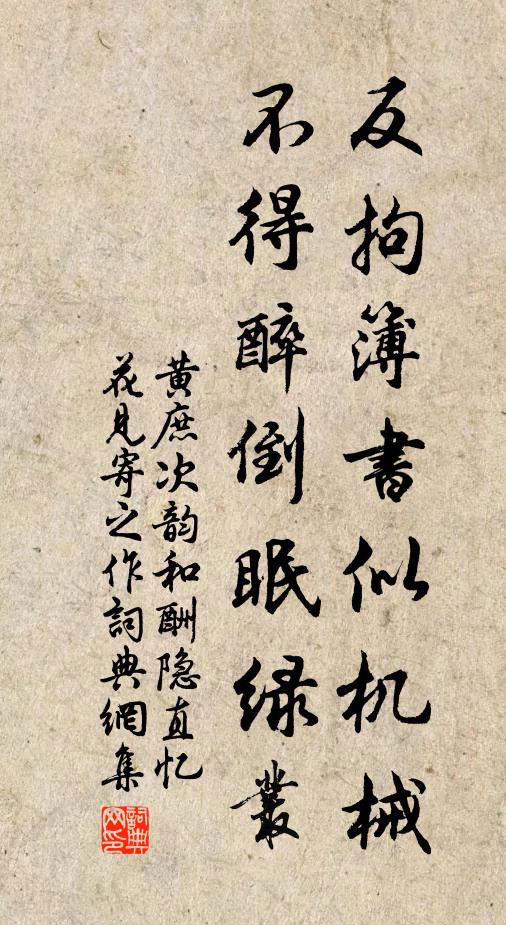 反拘簿书似机械
不得醉倒眠绿丛
黄庶次韵和酬隐直忆
花见寄之作詞典網集
詞典
网印